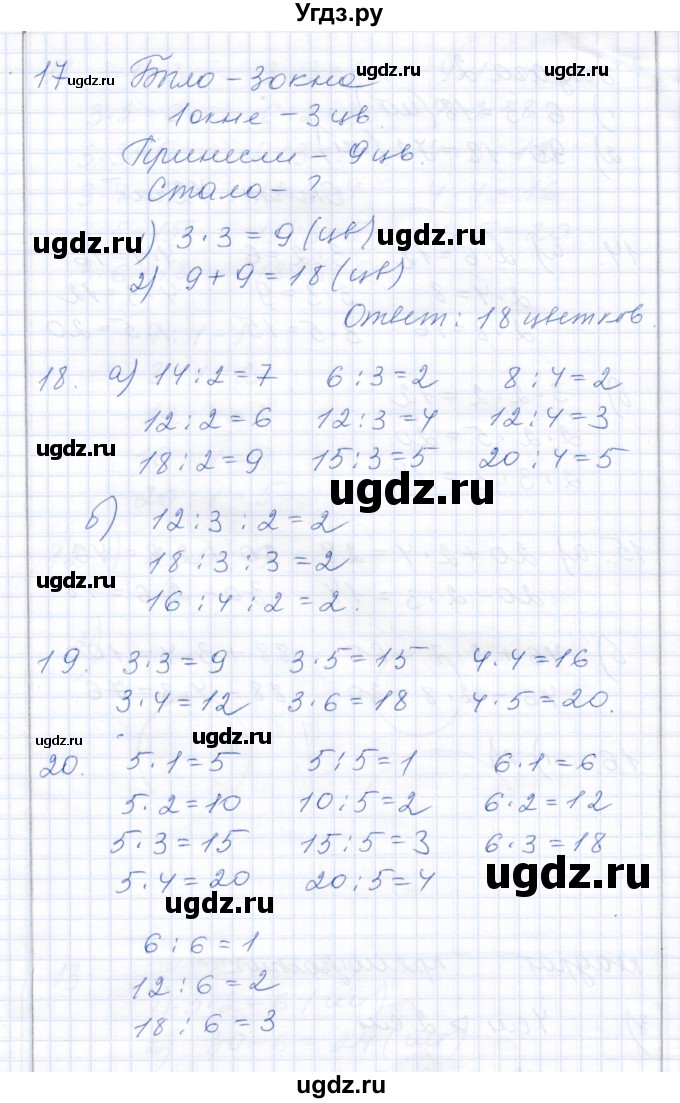 Угдз.ру
17 Было - 3 окна
1 окне - 3 цв.
Принесли - 9 цв.
Стало - ?
1) 3 · 3 = 9 (цв)
2) 9 + 9 = 18 (цв)
Ответ: 18 цветков.
18. а) 14 : 2 = 7 6 : 3 = 2 8 : 4 = 2
12 : 2 = 6 12 : 3 = 4 12 : 4 = 3
18 : 2 = 9 15 : 3 = 5 20 : 4 = 5
б) 12 : 3 : 2 = 2
18 : 3 : 3 = 2
16 : 4 : 2 = 2.
19. 3 · 3 = 9 3 · 5 = 15 4 · 4 = 16
3 · 4 = 12 3 · 6 = 18 4 · 5 = 20.
20. 5 · 1 = 5 5 : 5 = 1 6 · 1 = 6
5 · 2 = 10 10 : 5 = 2 6 · 2 = 12
5 · 3 = 15 15 : 5 = 3 6 · 3 = 18
5 · 4 = 20 20 : 5 = 4
6 : 6 = 1
12 : 6 = 2
18 : 6 = 3
ugdz.ru
ugdz.ru
ugdz.ru
ugdz.ru
ugdz.ru
ugdz.ru
ugdz.ru
ugdz.ru
ugdz.ru
ugdz.ru
ugdz.ru
ugdz.ru
ugdz.ru